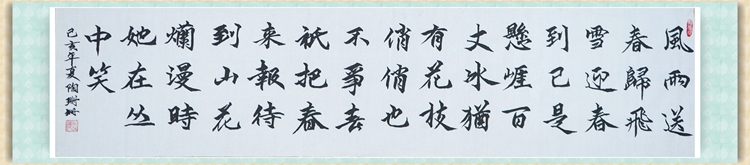 風雨送
春歸飛
雪迎春
到已是
懸崖百
丈冰猶
有花枝
俏俏也
不爭春
祇把春
来報待
到山花
爛漫時
她在丛
中笑
己亥年夏陶珊珊